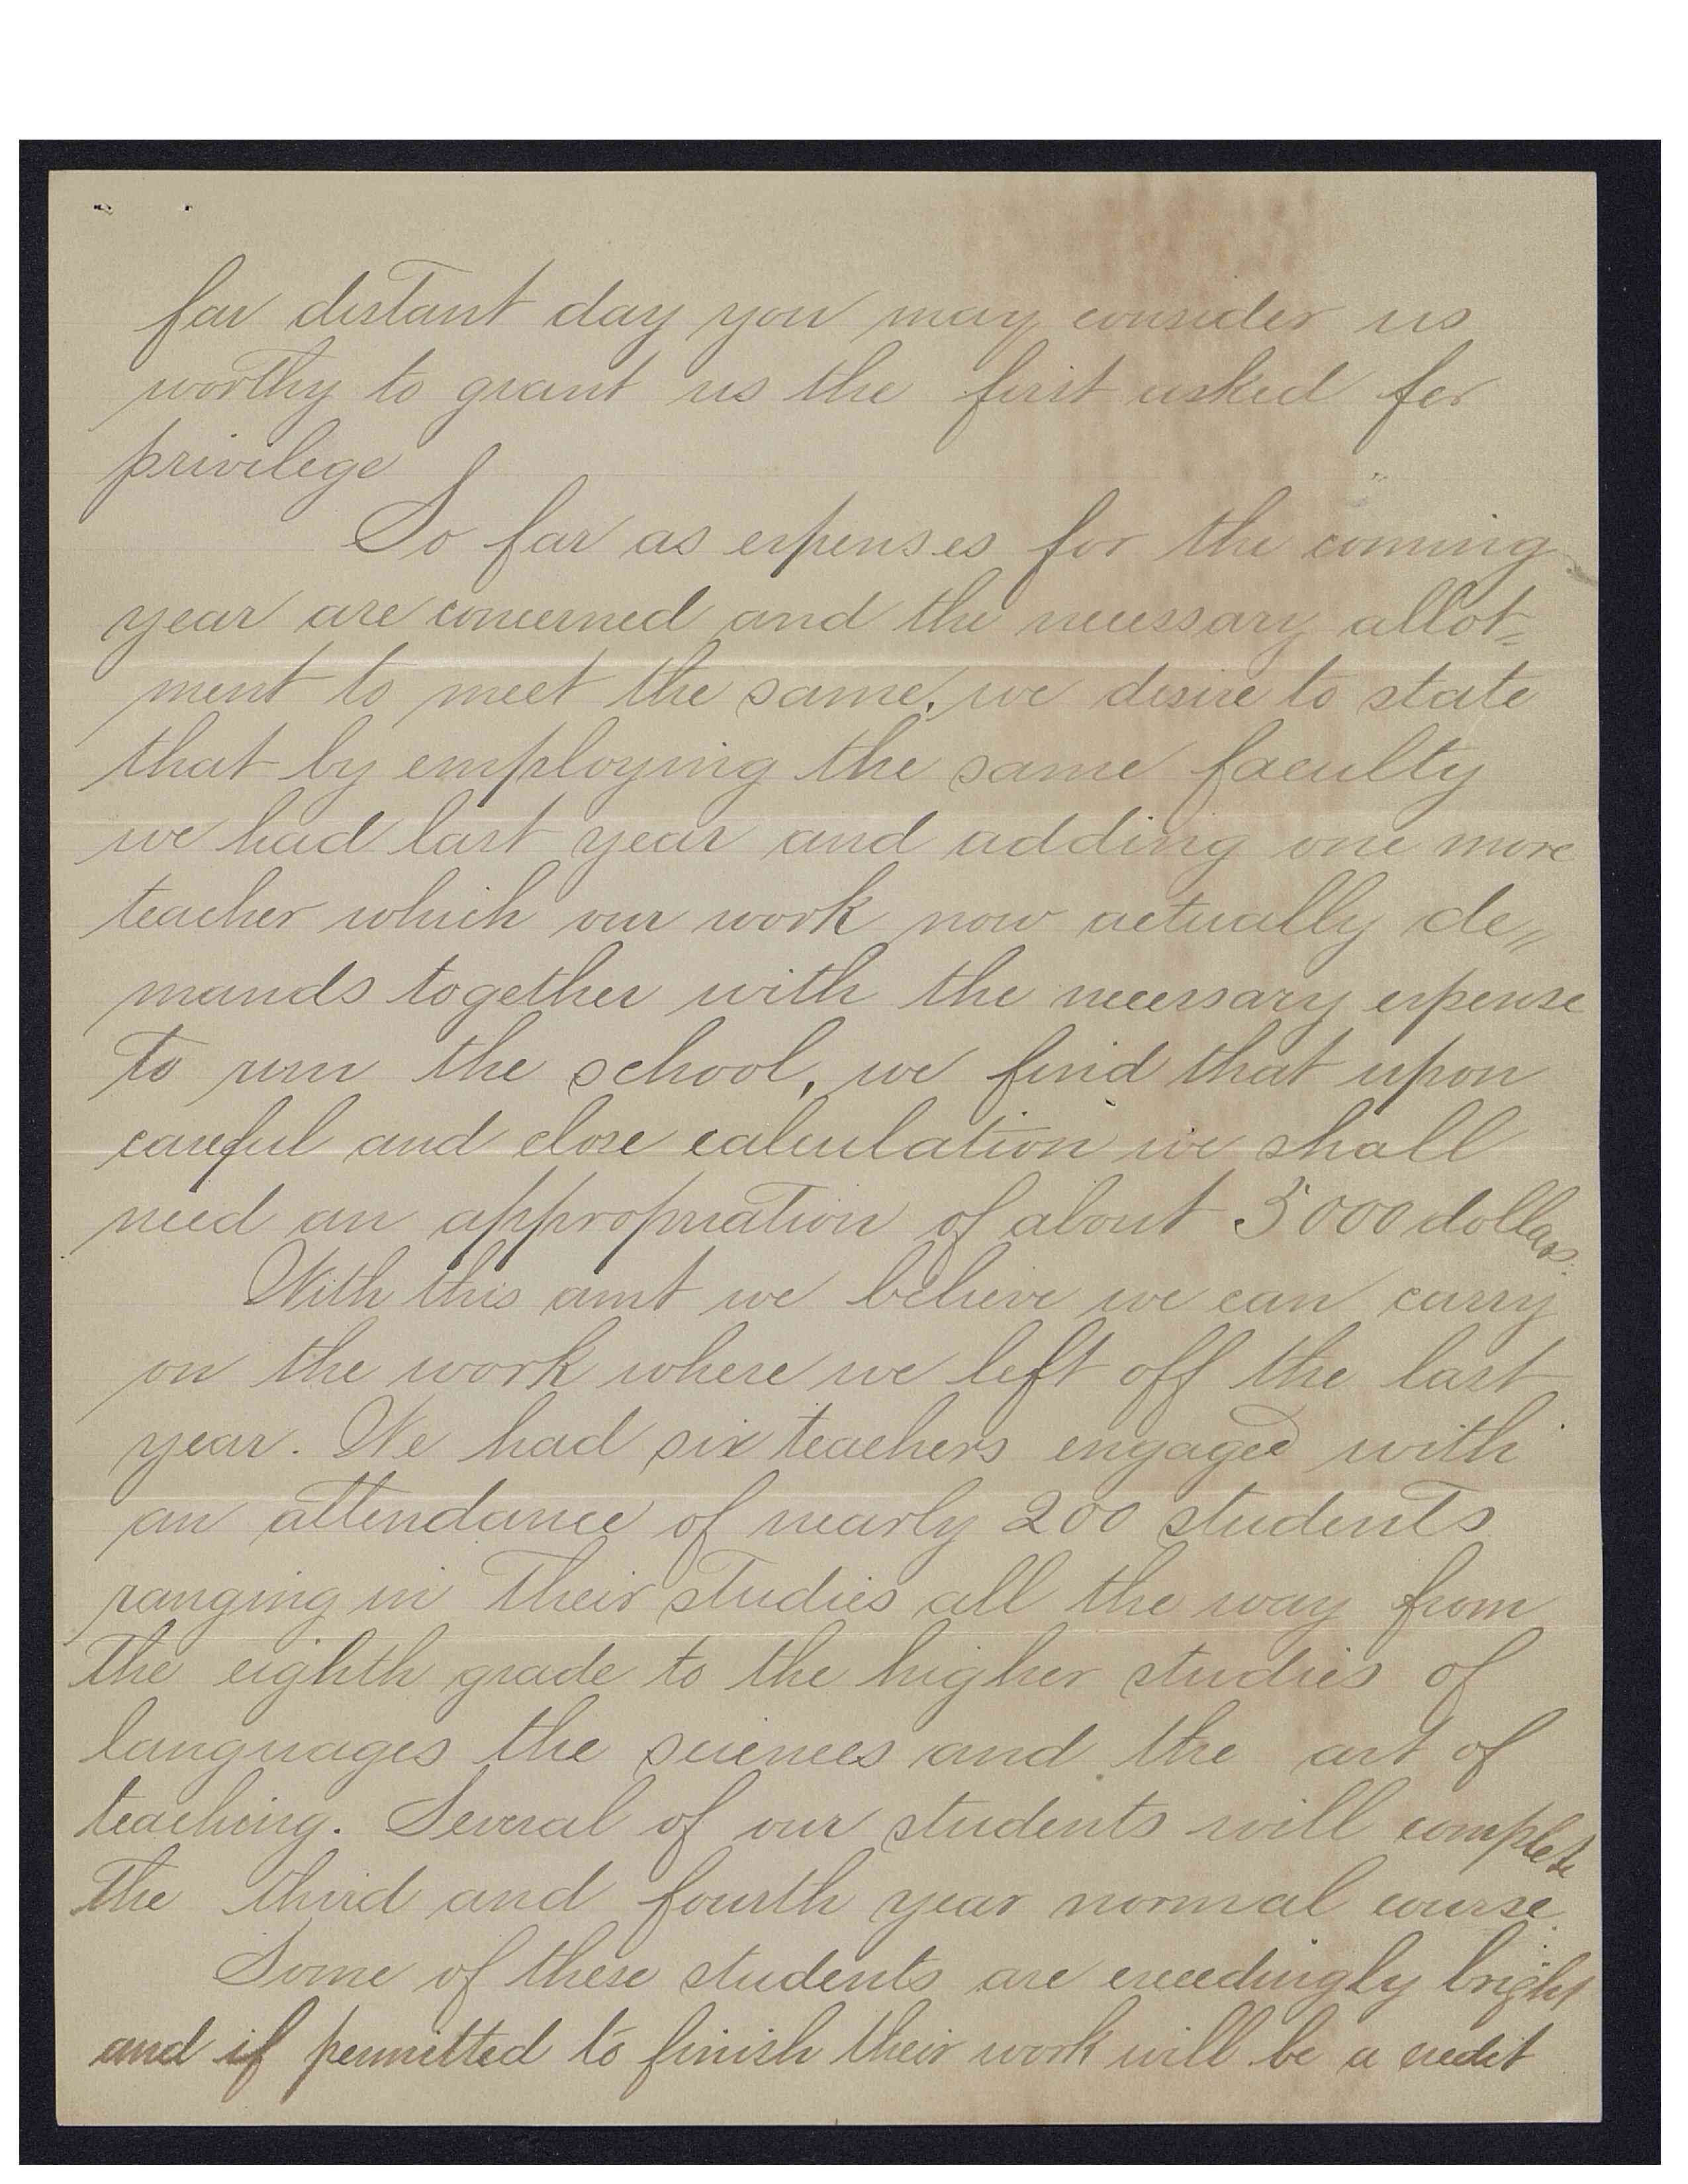 far distant day you may consider us
worthy to grant us the first asked for
privilege
So far as expenses for the coming
year are concerned and the necessary allot=
ment to meet the same, we desire to state
that by employing the same faculty
we had last year and adding one more
teacher which our work now actually de=
mands together with the necessary expense
to run the school, we find that upon
careful and close calculation we shall
need an appropriation of about 5000 dollars.
With this amt we believe we can carry
on the work where we left off the last
year. We had six teachers engaged with
an attendance of nearly 200 students
ranging in their studies all the way from
the eighth grade to the higher studies of
languages the sciences and the art of
teaching. Several of our students will complete
the third and fourth year normal course.
Some of these students are exceedingly bright
and if permitted to finish their work will be a credit